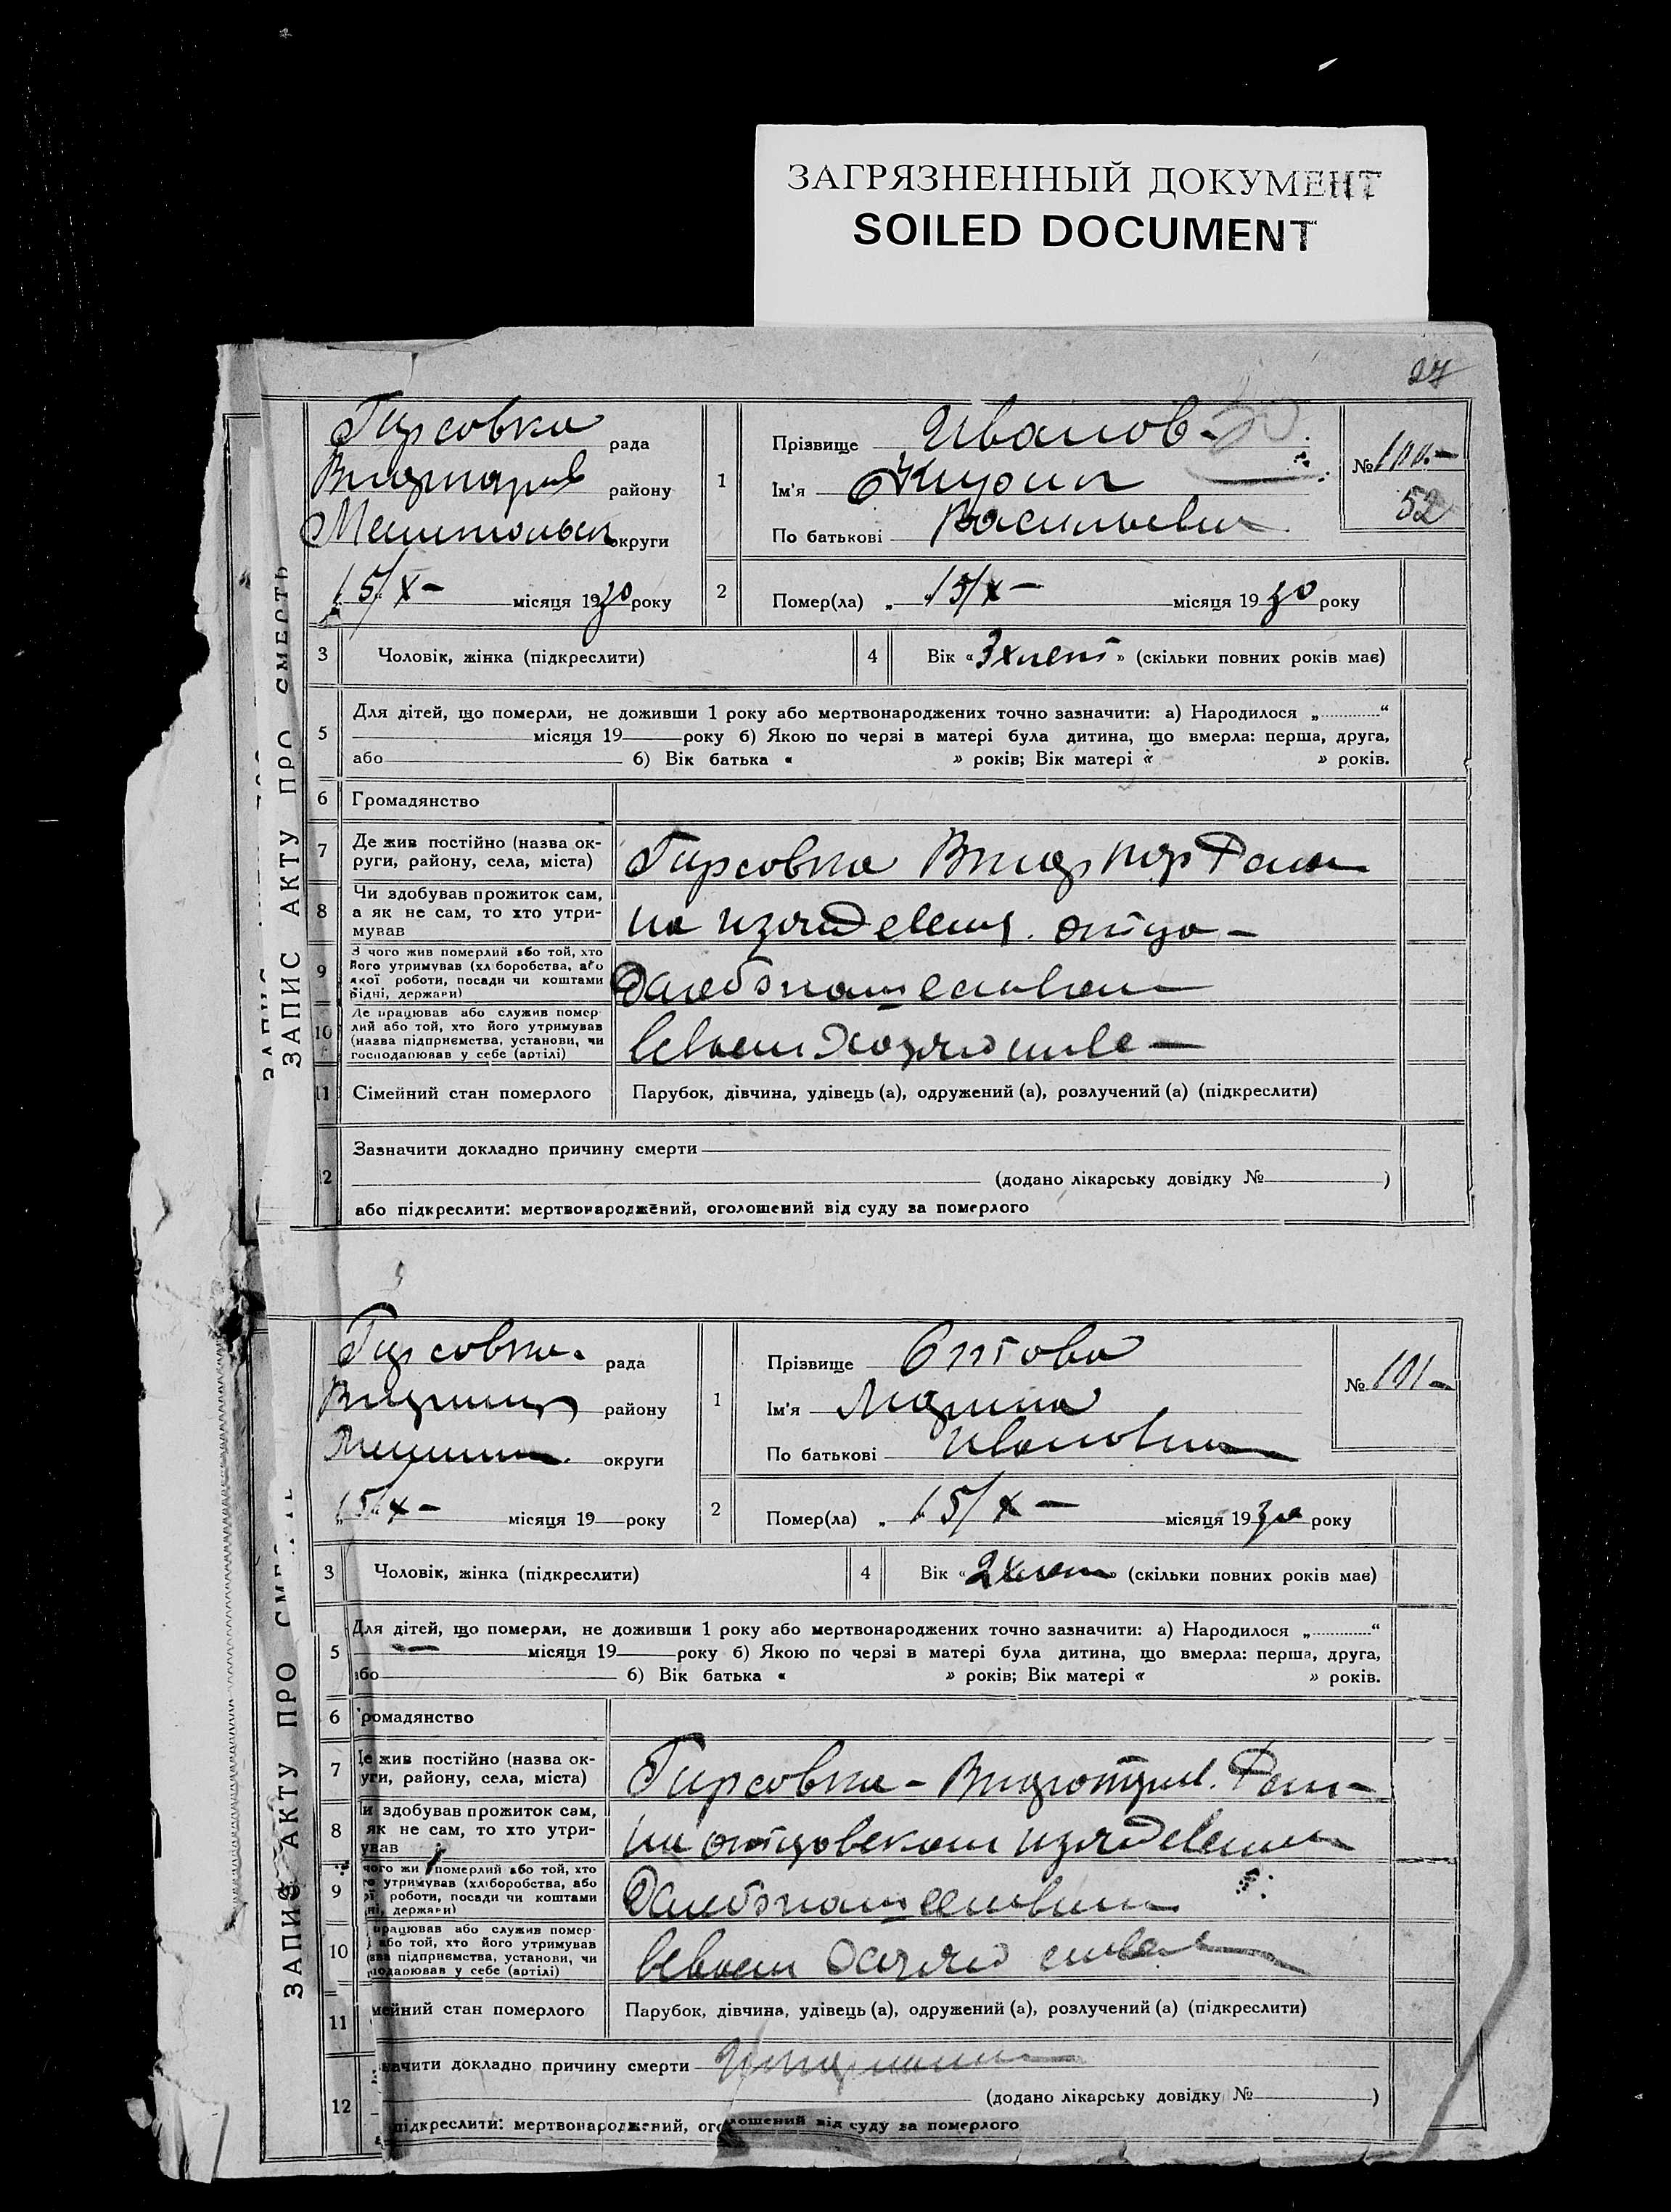 ЗАГРЯЗНЕННЫЙ ДОКУМЕНТ
SOILED DOCUMENT
27
ЗАПИС АКТУ ПРО СМЕРТЬ
Гирсовка рада
району
округи
15/X – місяця 1930 року
1
Прізвище Иванов
Ім'я
По батькові Васильевич
№ 100. –
52
2
Помер(ла) „ 15/X – місяця 1930 року
3 Чоловік, жінка (підкреслити)
4 Вік « 3х лет » (скільки повних років має)
5
Для дітей, що померли, не доживши 1 року або мертвонароджених точно зазначити: а) Народилося „ “
місяця 19 року б) Якою по черзі в матері була дитина, що вмерла: перша, друга,
або 6) Вік батька « » років; Вік матері « » років.
6 Громадянство
7
Де жив постійно (назва ок-
руги, району, села, міста)
Гирсовка
8
Чи здобував прожиток сам,
а як не сам, то хто утри-
мував
на отца –
9
З чого жив померлий або той, хто
його утримував (хліборобства, або
якої роботи, посади чи коштами
рідні, держави)
10
Де працював або служив помер
лий або той, хто його утримував
(назва підприємства, установи, чи
господарював у себе (артілі)
11 Сімейний стан померлого
Парубок, дівчина, удівець (а), одружений (а), розлучений (а) (підкреслити)
12
Зазначити докладно причину смерти
(додано лікарську довідку № )
або підкреслити: мертвонароджений, оголошений від суду за померлого
ЗАПИС АКТУ ПРО
Гирсовка. рада
району
округи
15/X – місяця 19 року
1
Прізвище
Ім'я
По батькові Ивановна
№ 101 –
2
Помер(ла) „ 15/X – місяця 1930 року
3 Чоловік, жінка (підкреслити)
4 Вік « 2х лет » (скільки повних років має)
5
Для дітей, що померли, не доживши 1 року або мертвонароджених точно зазначити: а) Народилося „ “
місяця 19 року б) Якою по черзі в матері була дитина, що вмерла: перша, друга,
або 6) Вік батька « » років; Вік матері « » років.
6 Громадянство
7
Де жив постійно (назва ок-
уги, району, села, міста)
Гирсовка –
8
здобував прожиток сам,
як не сам, то хто утри-
ував
на отцовском
9
чого жи померлий або той, хто
утримував (хліборобства, або
роботи, посади чи коштами
держави)
10
працював або служив помер
або той, хто його утримував
підприємства, установи, чи
господарював у себе (артілі)
11 мейний стан померлого
Парубок, дівчина, удівець (а), одружений (а), розлучений (а) (підкреслити)
12
начити докладно причину смерти
(додано лікарську довідку № )
підкреслити: мертвонароджений, оголошений від суду за померлого